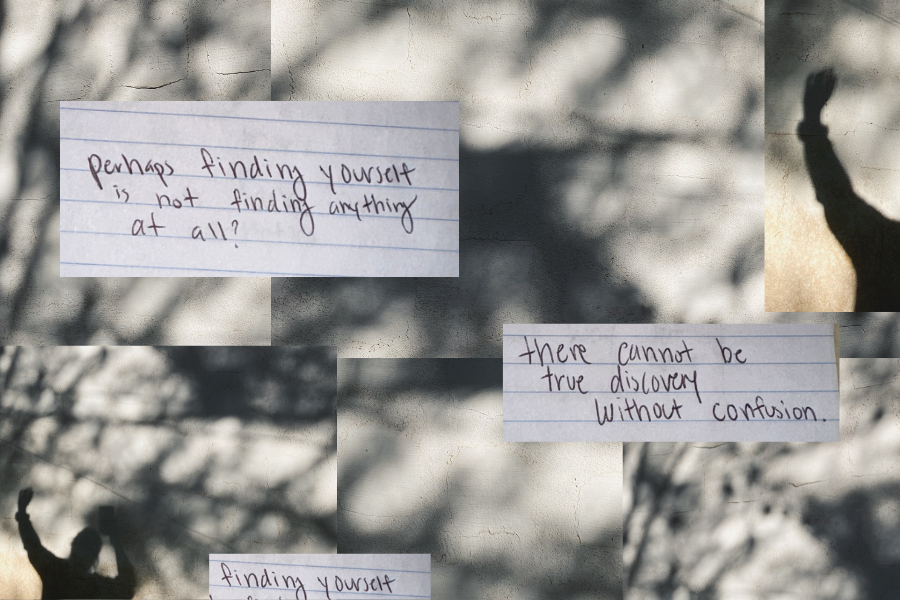 perhaps finding yourself
is not finding anything
at all?
there cannot be
true discovery
without confusion.
finding yourself